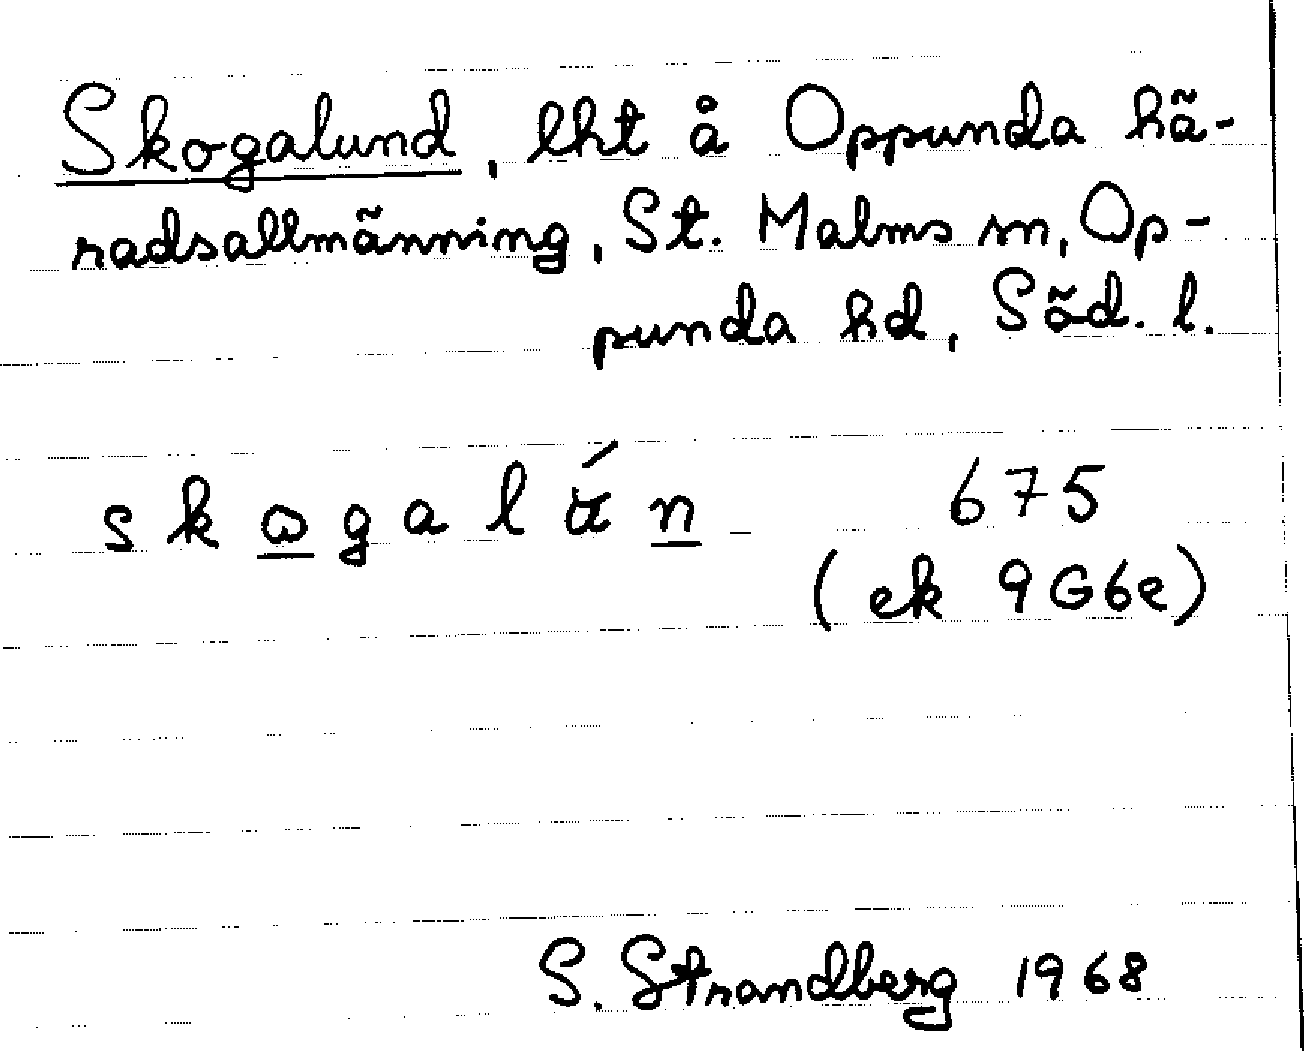 Skogalund, lht å Oppunda hä-
radsallmänning, St. Malms sn, Op-
punda hd, Söd. l.
skogalún 675
(ek 9G6e)
S. Strandberg 1968